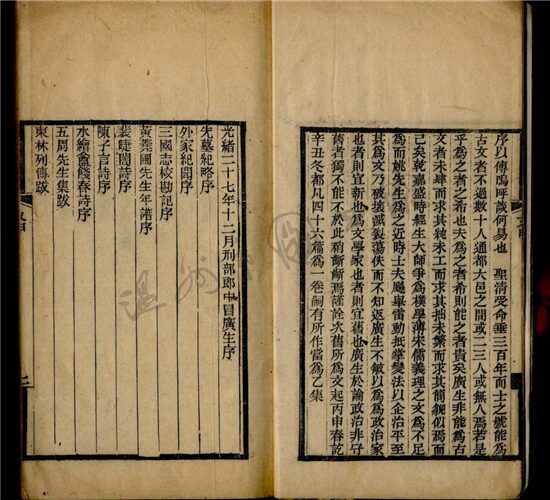 序以傳嗚呼談何易也　聖清受命垂三百年而士之號能為
古文者不過數十人通都大邑之間或二三人或無人焉若是
乎為之者之希也夫為之者希則能之者貴矣廣生非能為古
文者未肆而求其純未工而求其拙未繁而求其簡貌似焉而
已矣乾嘉盛時經生大師爭為樸學薄宋儒義理之文為不足
為而姚先生為之近時士夫飈舉雷動扺掌變法以企治平至
其為文乃破壞滅裂蕩佚而不知返廣生不敏以為為政治家
也者則宜新也為文學家也者則宜舊也廣生於論政治非守
舊者獨不能不於此稍齗齗焉謹詮次舊所為文起丙申春訖
辛丑冬都凡四十六篇為一卷嗣有所作當為乙集
光緒二十七年十二月刑部郎中冒廣生序
先墓紀略序
外家紀聞序
三國志校勘記序
黃蕘圃先生年譜序
裴睫闇詩序
陳子言詩序
水繪盦餞春詩序
五周先生集跋
東林列傳跋